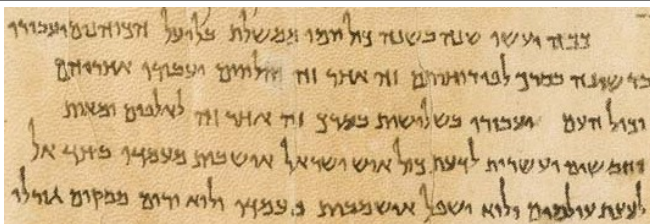 ככה יעשו שנה בשנה כול יומי ממשלת בליעל הכוהנים יעבורו
ברשונה בסרך לפי רוחותם זה אחר זה והלויים יעבורו אחריהם
וכול העם יעבורו בשלישית בסרך זה אחר זה לאלפים ומאות
וחמשים ועשרות לדעת כול איש ישראל איש בית מעמדו ביחד אל
לעצת עולמים ולוא ישפל איש מבית מעמדו ולוא ירום ממקום גורלו